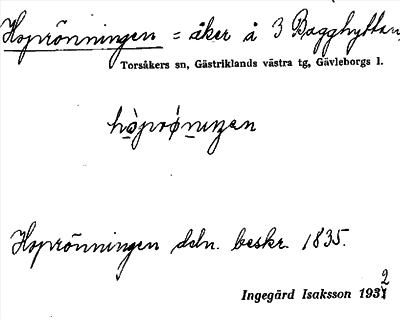 Hoprönningen = åker å 3 Bagghyttan,
Torsåkers sn, Gästriklands västra tg, Gävleborgs l.
Hoprönningen deln. beskr. 1835.
Ingegärd Isaksson 1932